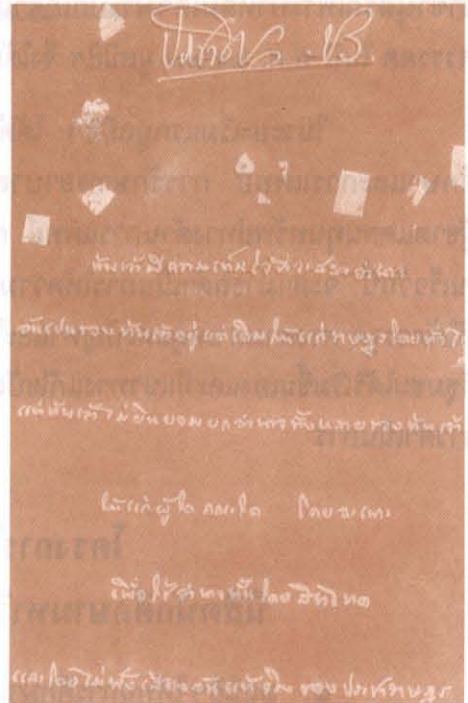 ประชาธิปก ปร.
ข้าพเจ้ามีความเต็มใจที่จะสละอำนาจ
อันเป็นของข้าพเจ้าอยู่แต่เดิมให้แก่ราษฎรโดยทั่วไป
แต่ข้าพเจ้าไม่ยินยอมยกอำนาจทั้งหลายของข้าพเจ้า
ให้แก่ผู้ใด คณะใด โดยฉะเพาะ
เพื่อใช้อำนาจนั้นโดยสิทธิขาด
และโดยไม่ฟังเสียงอันแท้จริง ของประชาราษฎร